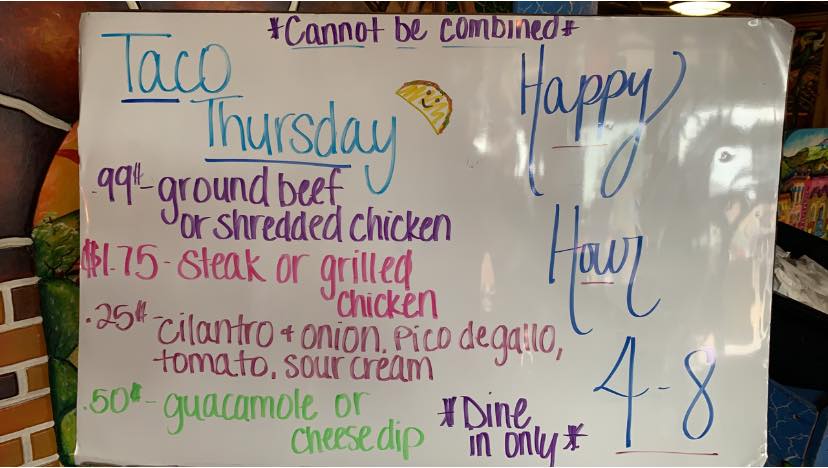 *Cannot be combined*
Taco
Thursday
.99¢-ground beef
or shredded chicken
$1.75-steak or grilled
chicken
.25¢-cilantro + onion, pico de gallo,
tomato, sour cream
.50¢-guacamole or
cheese dip
*Dine
in only*
Happy
Hour
4-8